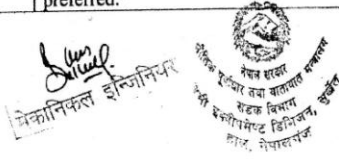 preferred.
मेकानिकल इन्जिनियर
नेपाल सरकार
भौतिक पूर्वाधार तथा यातायात मन्त्रालय
सडक विभाग
हेभी इक्वीपमेण्ट डिभिजन, सुर्खेत
हाल, नेपालगंज